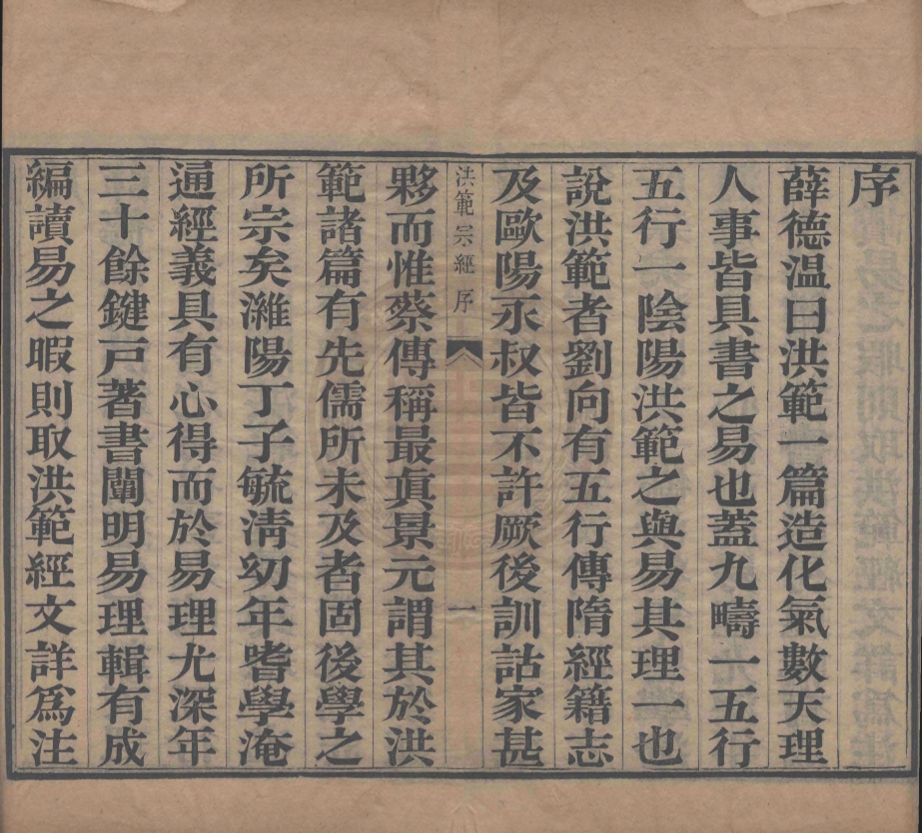 序
薛德温曰洪範一篇造化氣數天理
人事皆具書之易也蓋九疇一五行
五行一陰陽洪範之與易其理一也
說洪範者劉向有五行傳隋經籍志
及歐陽永叔皆不許厥後訓詁家甚
洪範宗經 序 一
夥而惟蔡傳稱最眞景元謂其於洪
範諸篇有先儒所未及者固後學之
所宗矣濰陽丁子毓清幼年嗜學淹
通經義具有心得而於易理尤深年
三十餘鍵戸著書闡明易理輯有成
編讀易之暇則取洪範經文詳爲注